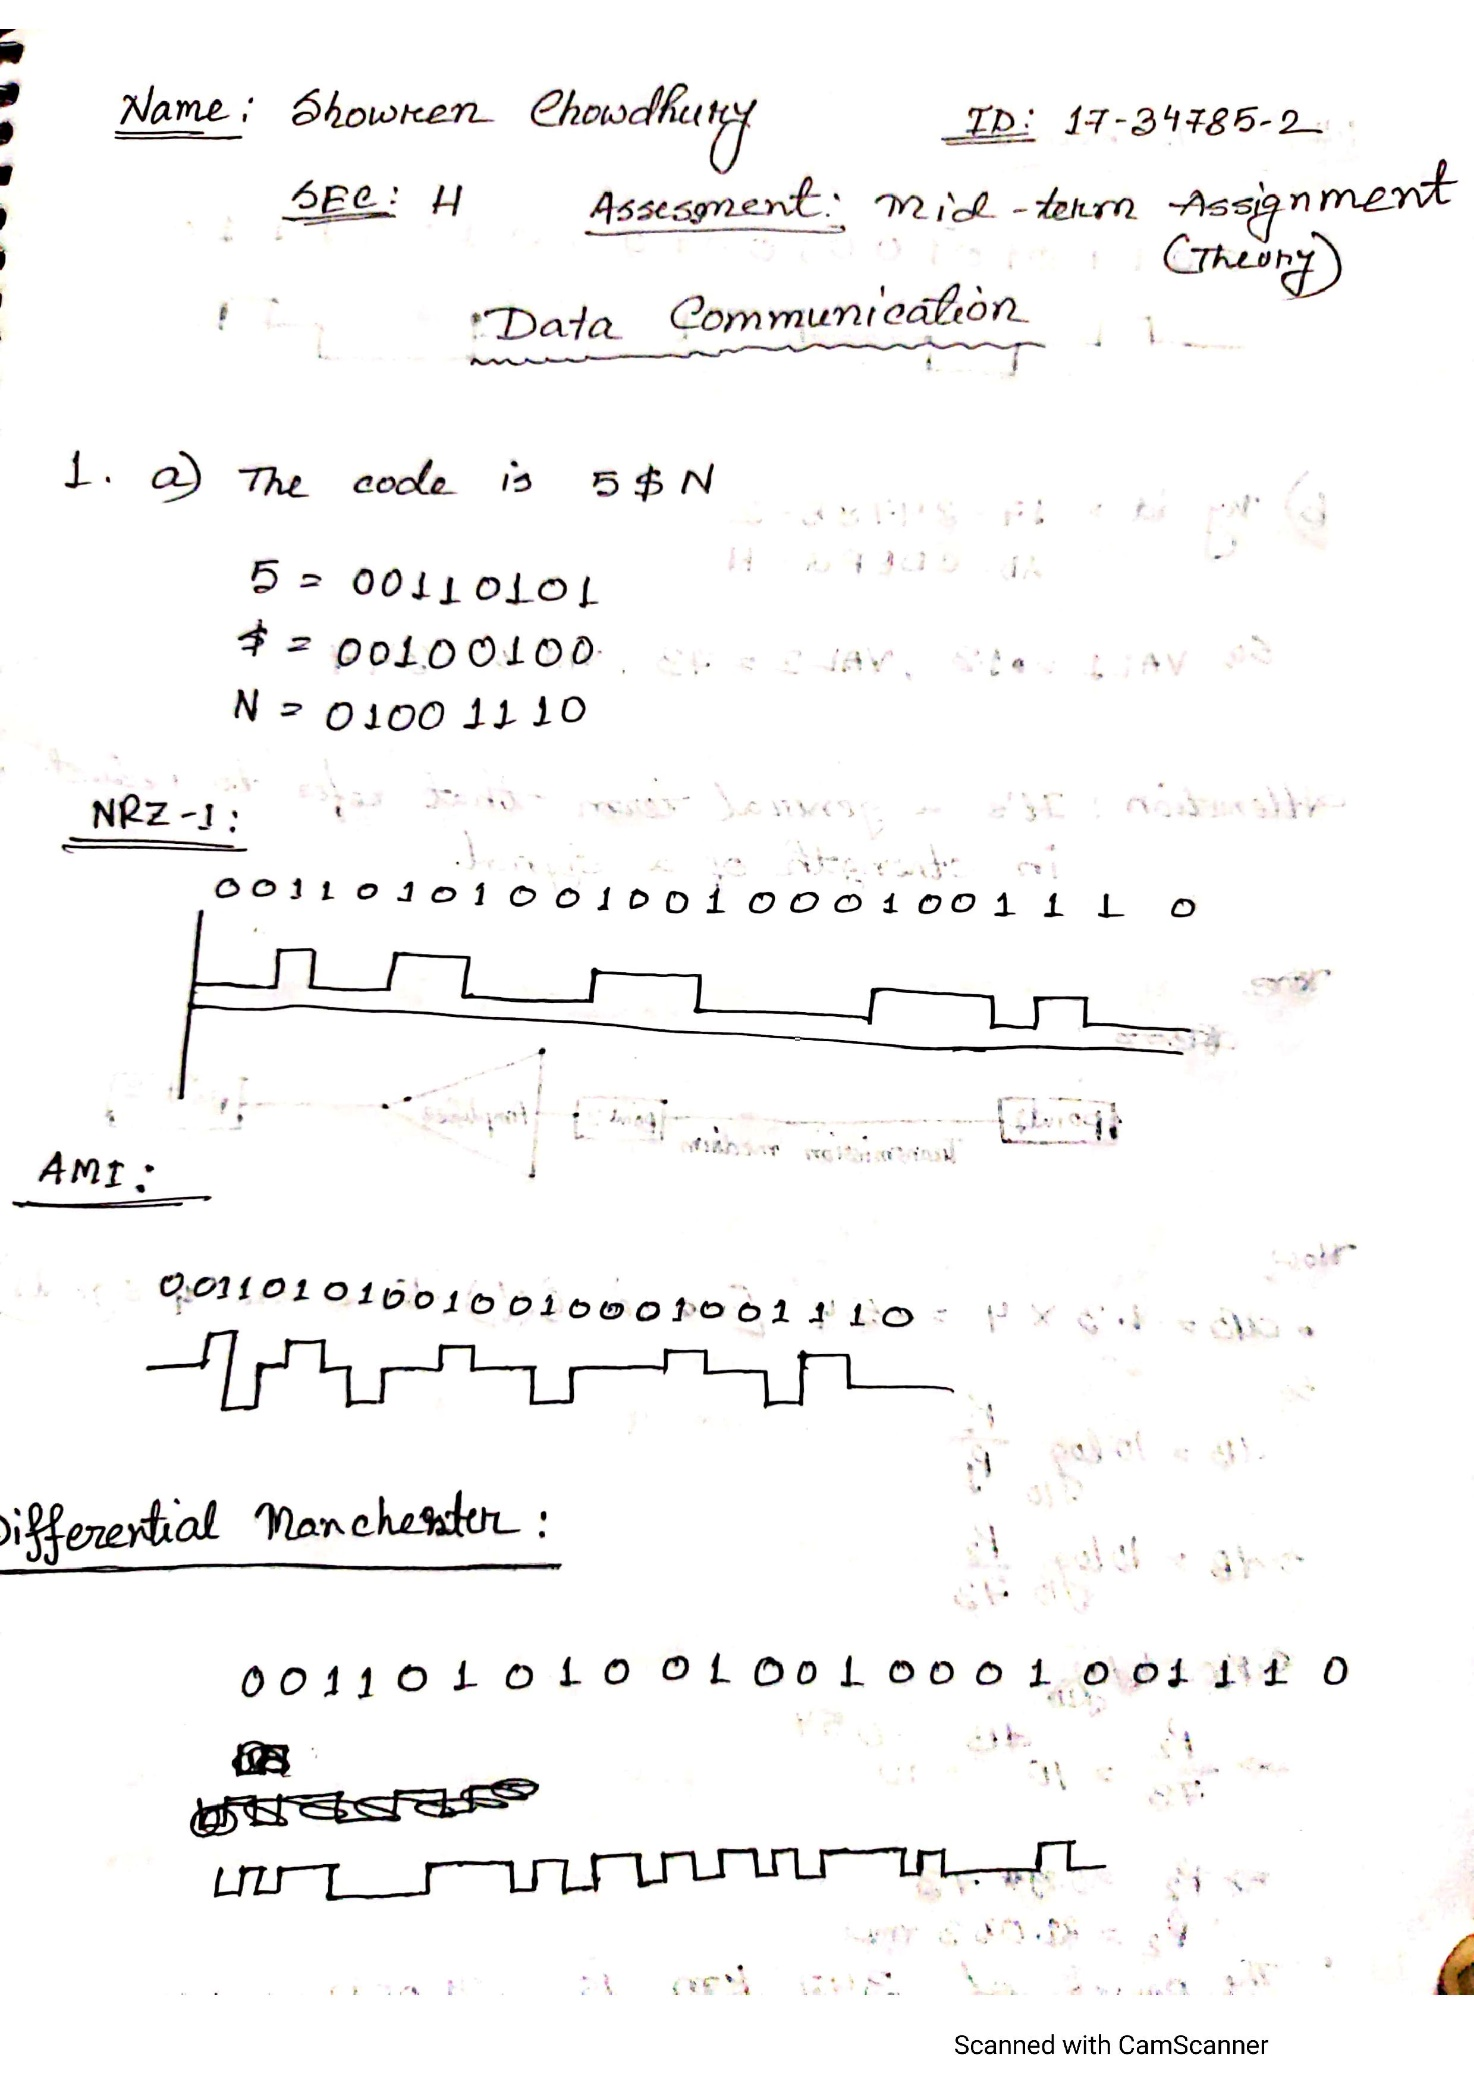 Name: Showren Chowdhury ID: 17-34785-2
SEC: H Assesment: Mid-term Assignment
(Theory)
Data Communication
1. a) The code is 5$N
5 = 00110101
$ = 00100100
N = 01001110
NRZ-I:
0 0 1 1 0 1 0 1 0 0 1 0 0 1 0 0 0 1 0 0 1 1 1 0
AMI:
0 0 1 1 0 1 0 1 0 0 1 0 0 1 0 0 0 1 0 0 1 1 1 0
Differential Manchester:
0 0 1 1 0 1 0 1 0 0 1 0 0 1 0 0 0 1 0 0 1 1 1 0
Scanned with CamScanner